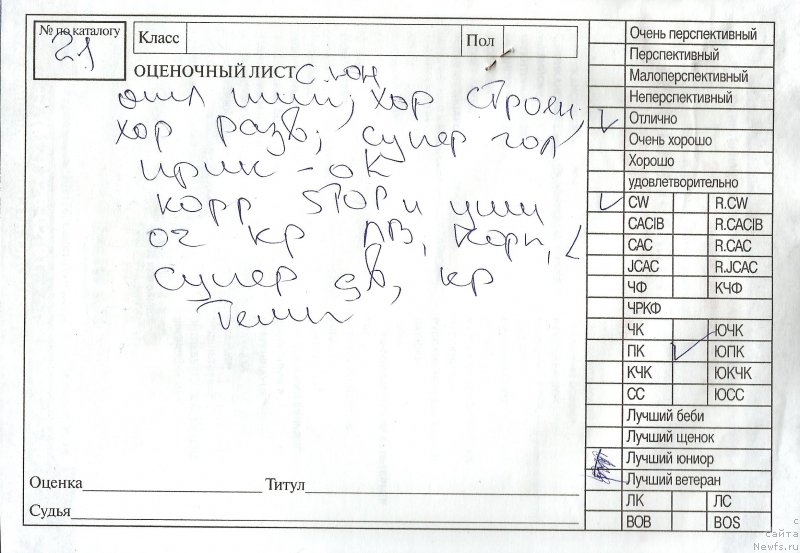 № по каталогу
21
Класс
Пол
ОЦЕНОЧНЫЙ ЛИСТ
с. юн
отл тип, хор строен,
хор разв, супер гол
прик - ок
корр STOP и уши
оч кр ЛВ, корп, L
супер дв, кр
темп
Оценка
Титул
Судья
Очень перспективный
Перспективный
Малоперспективный
Неперспективный
Отлично
Очень хорошо
Хорошо
удовлетворительно
CW R.CW
CACIB R.CACIB
CAC R.CAC
JCAC R.JCAC
ЧФ КЧФ
ЧРКФ
ЧК ЮЧК
ПК ЮПК
КЧК ЮКЧК
СС ЮСС
Лучший беби
Лучший щенок
Лучший юниор
Лучший ветеран
ЛК ЛС
BOB BOS
с
сайта
Newfs.ru